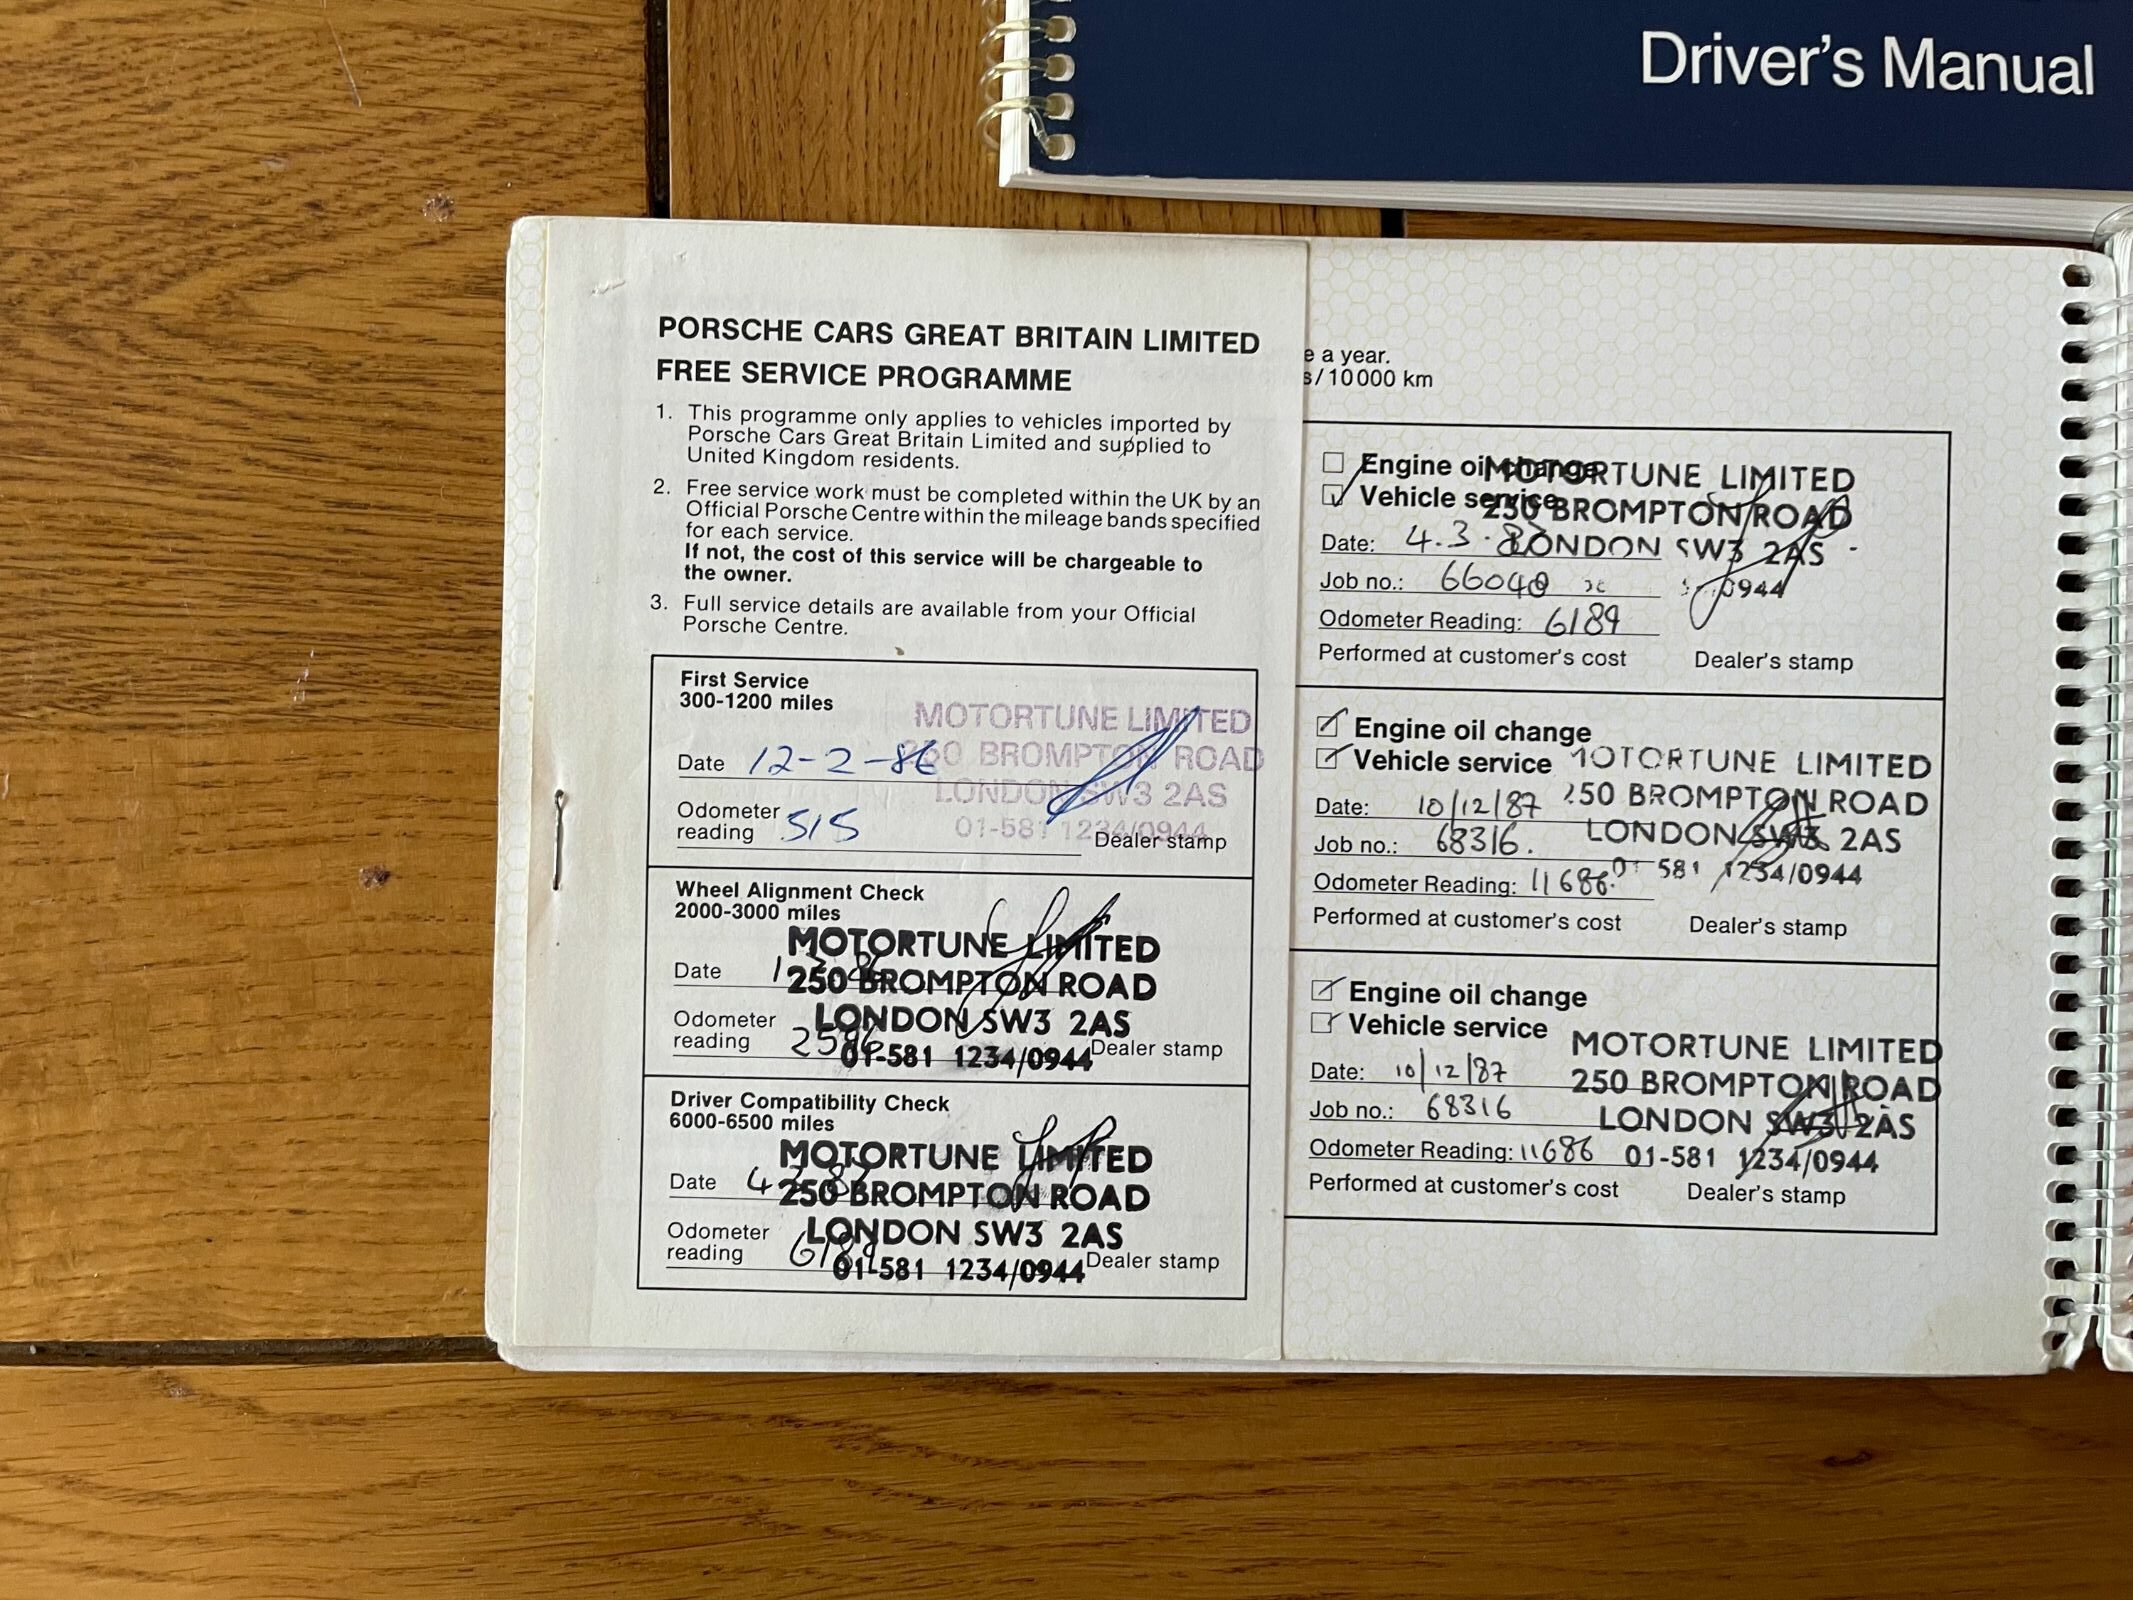 Driver's Manual
PORSCHE CARS GREAT BRITAIN LIMITED
FREE SERVICE PROGRAMME
1. This programme only applies to vehicles imported by
Porsche Cars Great Britain Limited and supplied to
United Kingdom residents.
2. Free service work must be completed within the UK by an
Official Porsche Centre within the mileage bands specified
for each service.
If not, the cost of this service will be chargeable to
the owner.
3. Full service details are available from your Official
Porsche Centre.
First Service
300-1200 miles
MOTORTUNE LIMITED
250 BROMPTON ROAD
LONDON SW3 2AS
01-581 1234/0944
Date 12-2-86
Odometer
reading 515
Dealer stamp
Wheel Alignment Check
2000-3000 miles
MOTORTUNE LIMITED
250 BROMPTON ROAD
LONDON SW3 2AS
01-581 1234/0944
Date
Odometer
reading
Dealer stamp
Driver Compatibility Check
6000-6500 miles
MOTORTUNE LIMITED
250 BROMPTON ROAD
LONDON SW3 2AS
01-581 1234/0944
Date
Odometer
reading 6189
Dealer stamp
e a year.
s/10000 km
Engine oil change
Vehicle service
MOTORTUNE LIMITED
250 BROMPTON ROAD
LONDON SW3 2AS
0944
Date: 4.3.87
Job no.: 66040
Odometer Reading: 6189
Performed at customer's cost Dealer's stamp
Engine oil change
Vehicle service
MOTORTUNE LIMITED
250 BROMPTON ROAD
LONDON SW3 2AS
01 581 1234/0944
Date: 10/12/87
Job no.: 68316.
Odometer Reading: 11686.
Performed at customer's cost Dealer's stamp
Engine oil change
Vehicle service
MOTORTUNE LIMITED
250 BROMPTON ROAD
LONDON SW3 2AS
01-581 1234/0944
Date: 10/12/87
Job no.: 68316
Odometer Reading: 11686
Performed at customer's cost Dealer's stamp